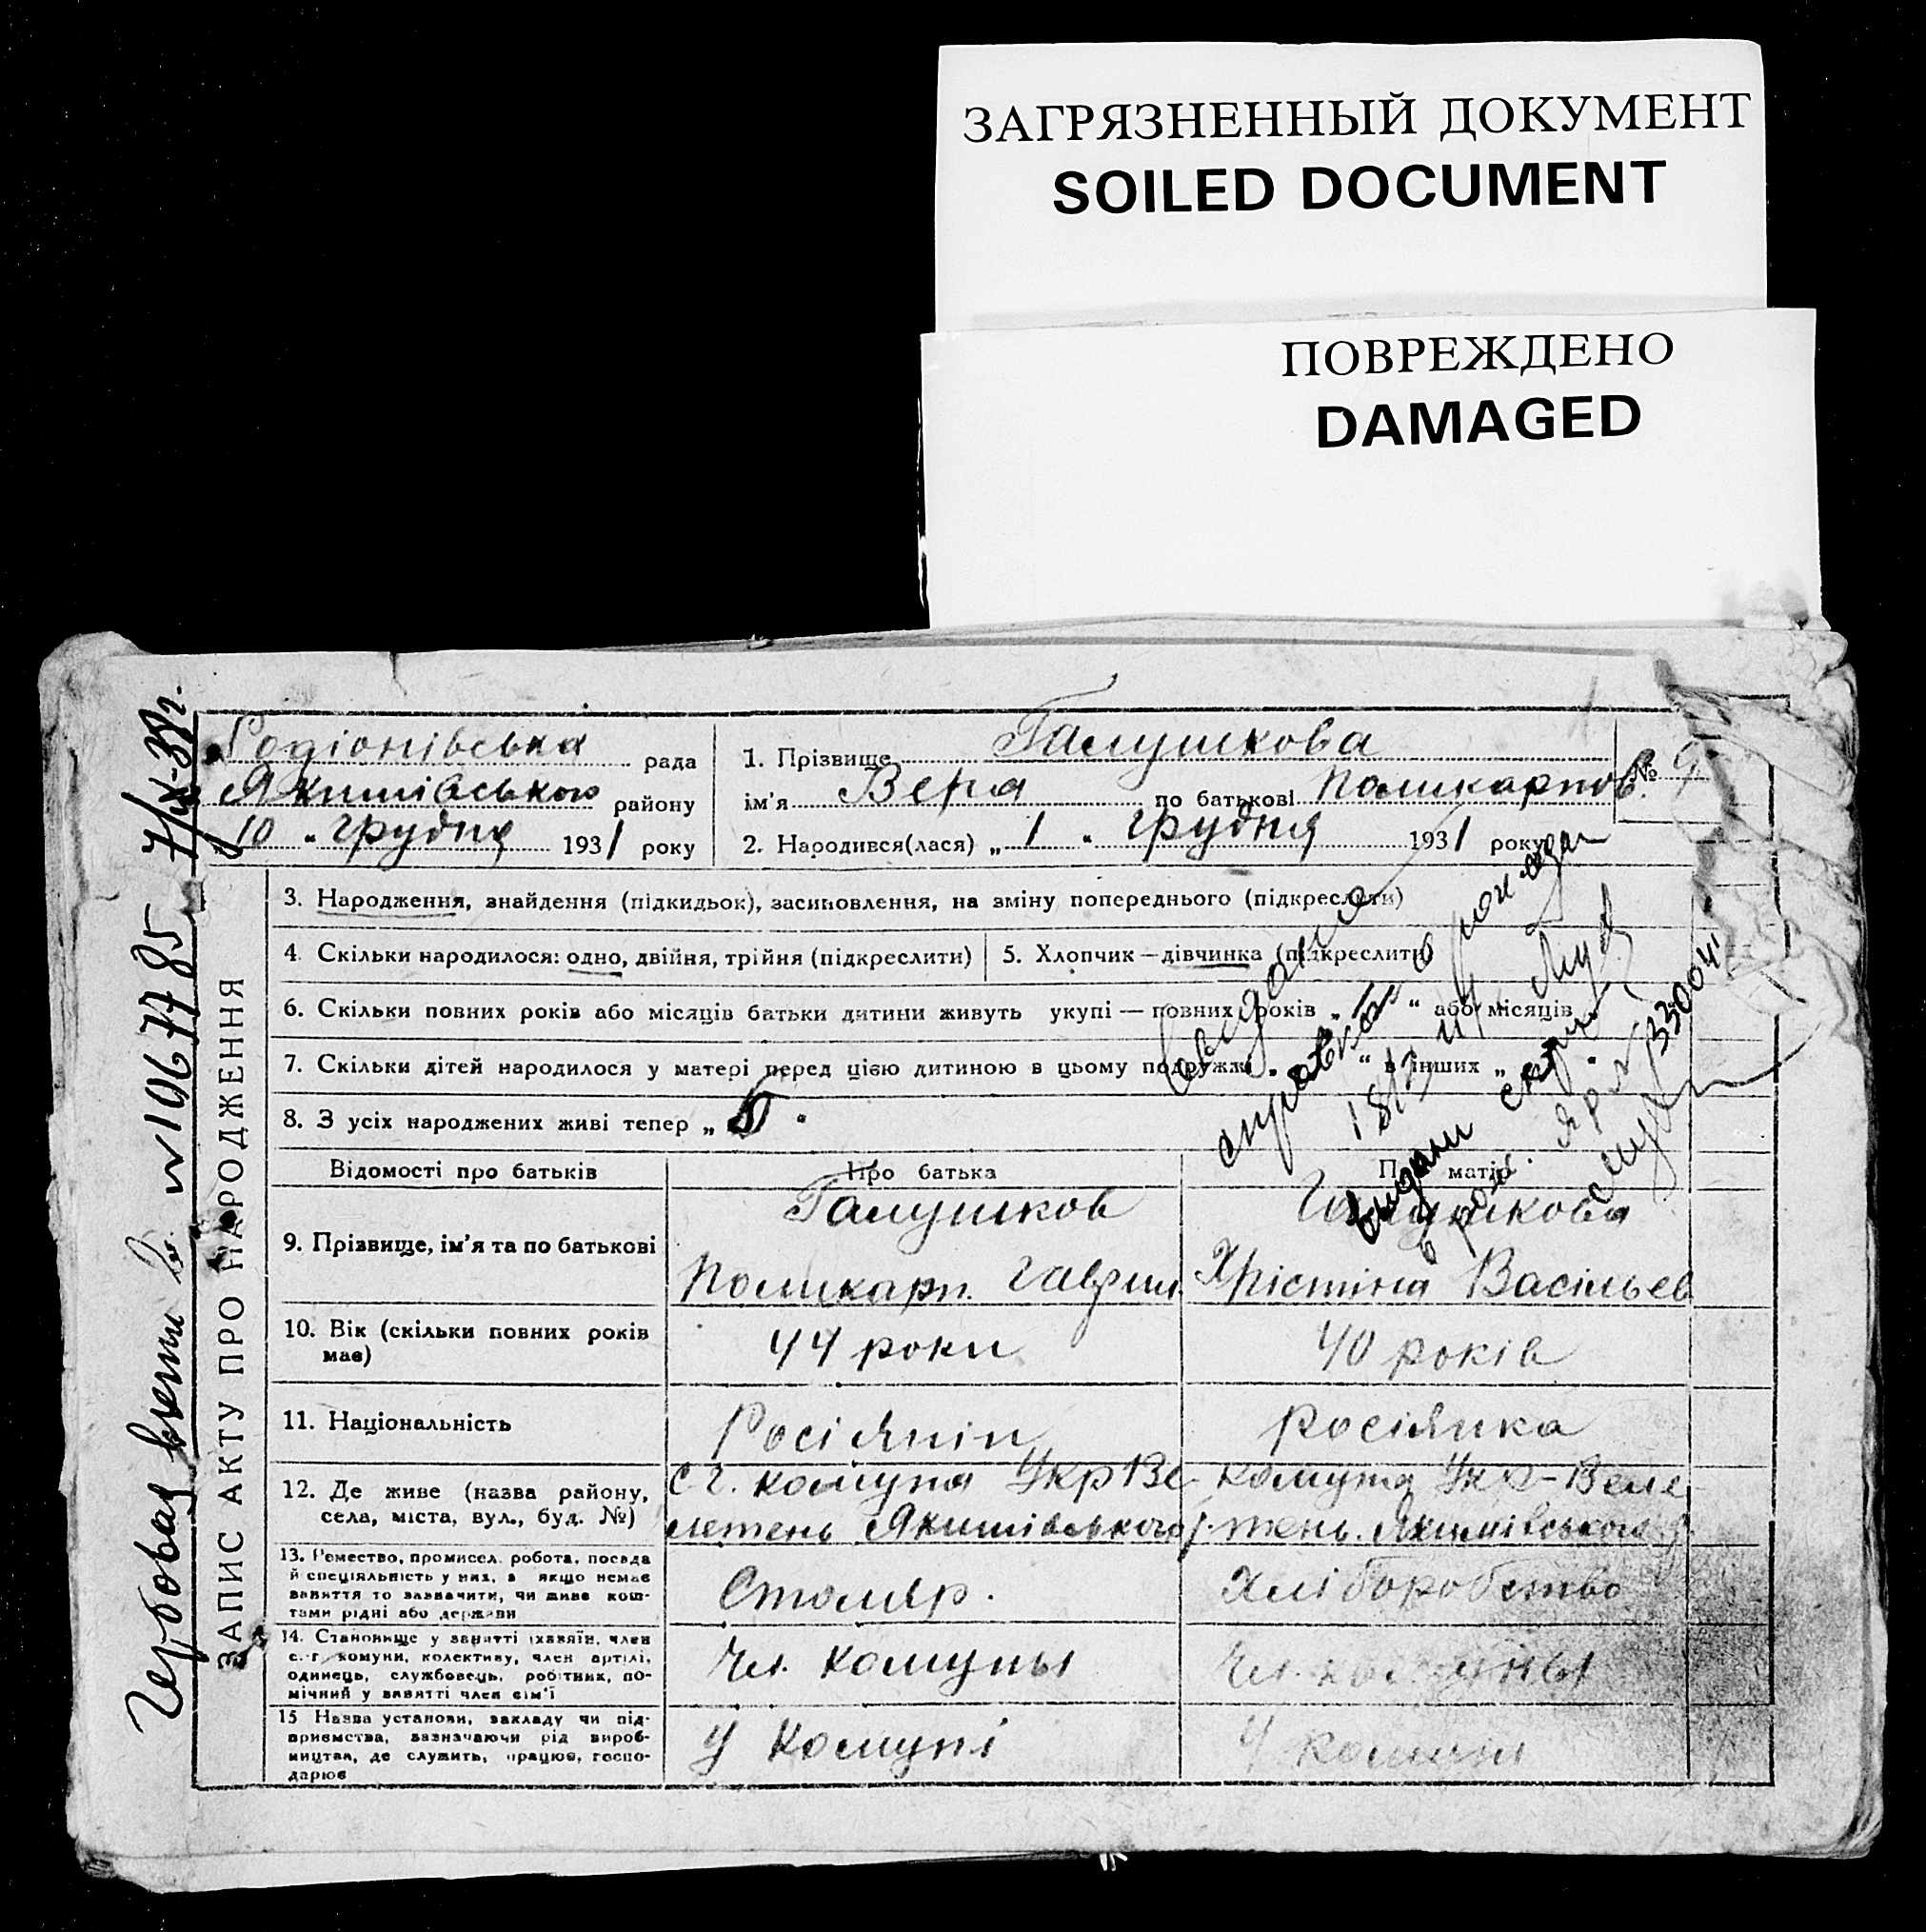 ЗАГРЯЗНЕННЫЙ ДОКУМЕНТ
SOILED DOCUMENT
ПОВРЕЖДЕНО
DAMAGED
Родіонівська рада
Якимівського району
10 " грудня 1931 року
1. Прізвище Галушкова
ім'я Вера по батькові Поликарпов.
№ 9
2. Народився(лася) „ 1 " грудня 1931 року
ЗАПИС АКТУ ПРО НАРОДЖЕННЯ
3. Народження, знайдення (підкидьок), засиновлення, на зміну попереднього (підкреслити)
4. Скільки народилося: одно, двійня, трійня (підкреслити)
5. Хлопчик — дівчинка (підкреслити)
6. Скільки повних років або місяців батьки дитини живуть укупі — повних років „ “ або місяців
7. Скільки дітей народилося у матері перед цією дитиною в цьому подружжі „ “ в інших „ "
8. З усіх народжених живі тепер „ 5 "
Відомості про батьків
Про батька
Про матір
9. Прізвище, ім'я та по батькові
Галушков
Поликарп. Гаврил.
Галушкова
Хрістіна Васільев
10. Вік (скільки повних років має)
44 роки
40 років
11. Національність
Росіянін
Росіянка
12. Де живе (назва району,
села, міста, вул., буд. №)
с г. комуна Укр Ве-
летень Якимівського р.
комуна Укр-Веле-
тень. Якимівського р.
13. Ремество, промисел, робота, посада
й спеціяльність у них, а якщо немає
заняття то зазначити, чи живе кош-
тами рідні або держави
Столяр.
Хліборобство
14. Становище у занятті (хазяїн, член
с.-г. комуни, колективу, член артілі,
одинець, службовець, робітник, по-
мічний у занятті член сім'ї
Чл. комуны
Чл. комуны
15 Назва установи, закладу чи під-
приємства, зазначаючи рід вироб-
ництва, де служить, працює, госпо-
дарює
У Комуні
У Комуні
Гербовая взыт в № 1067785 7/IX-38г.
справкою
видали
№ 33004